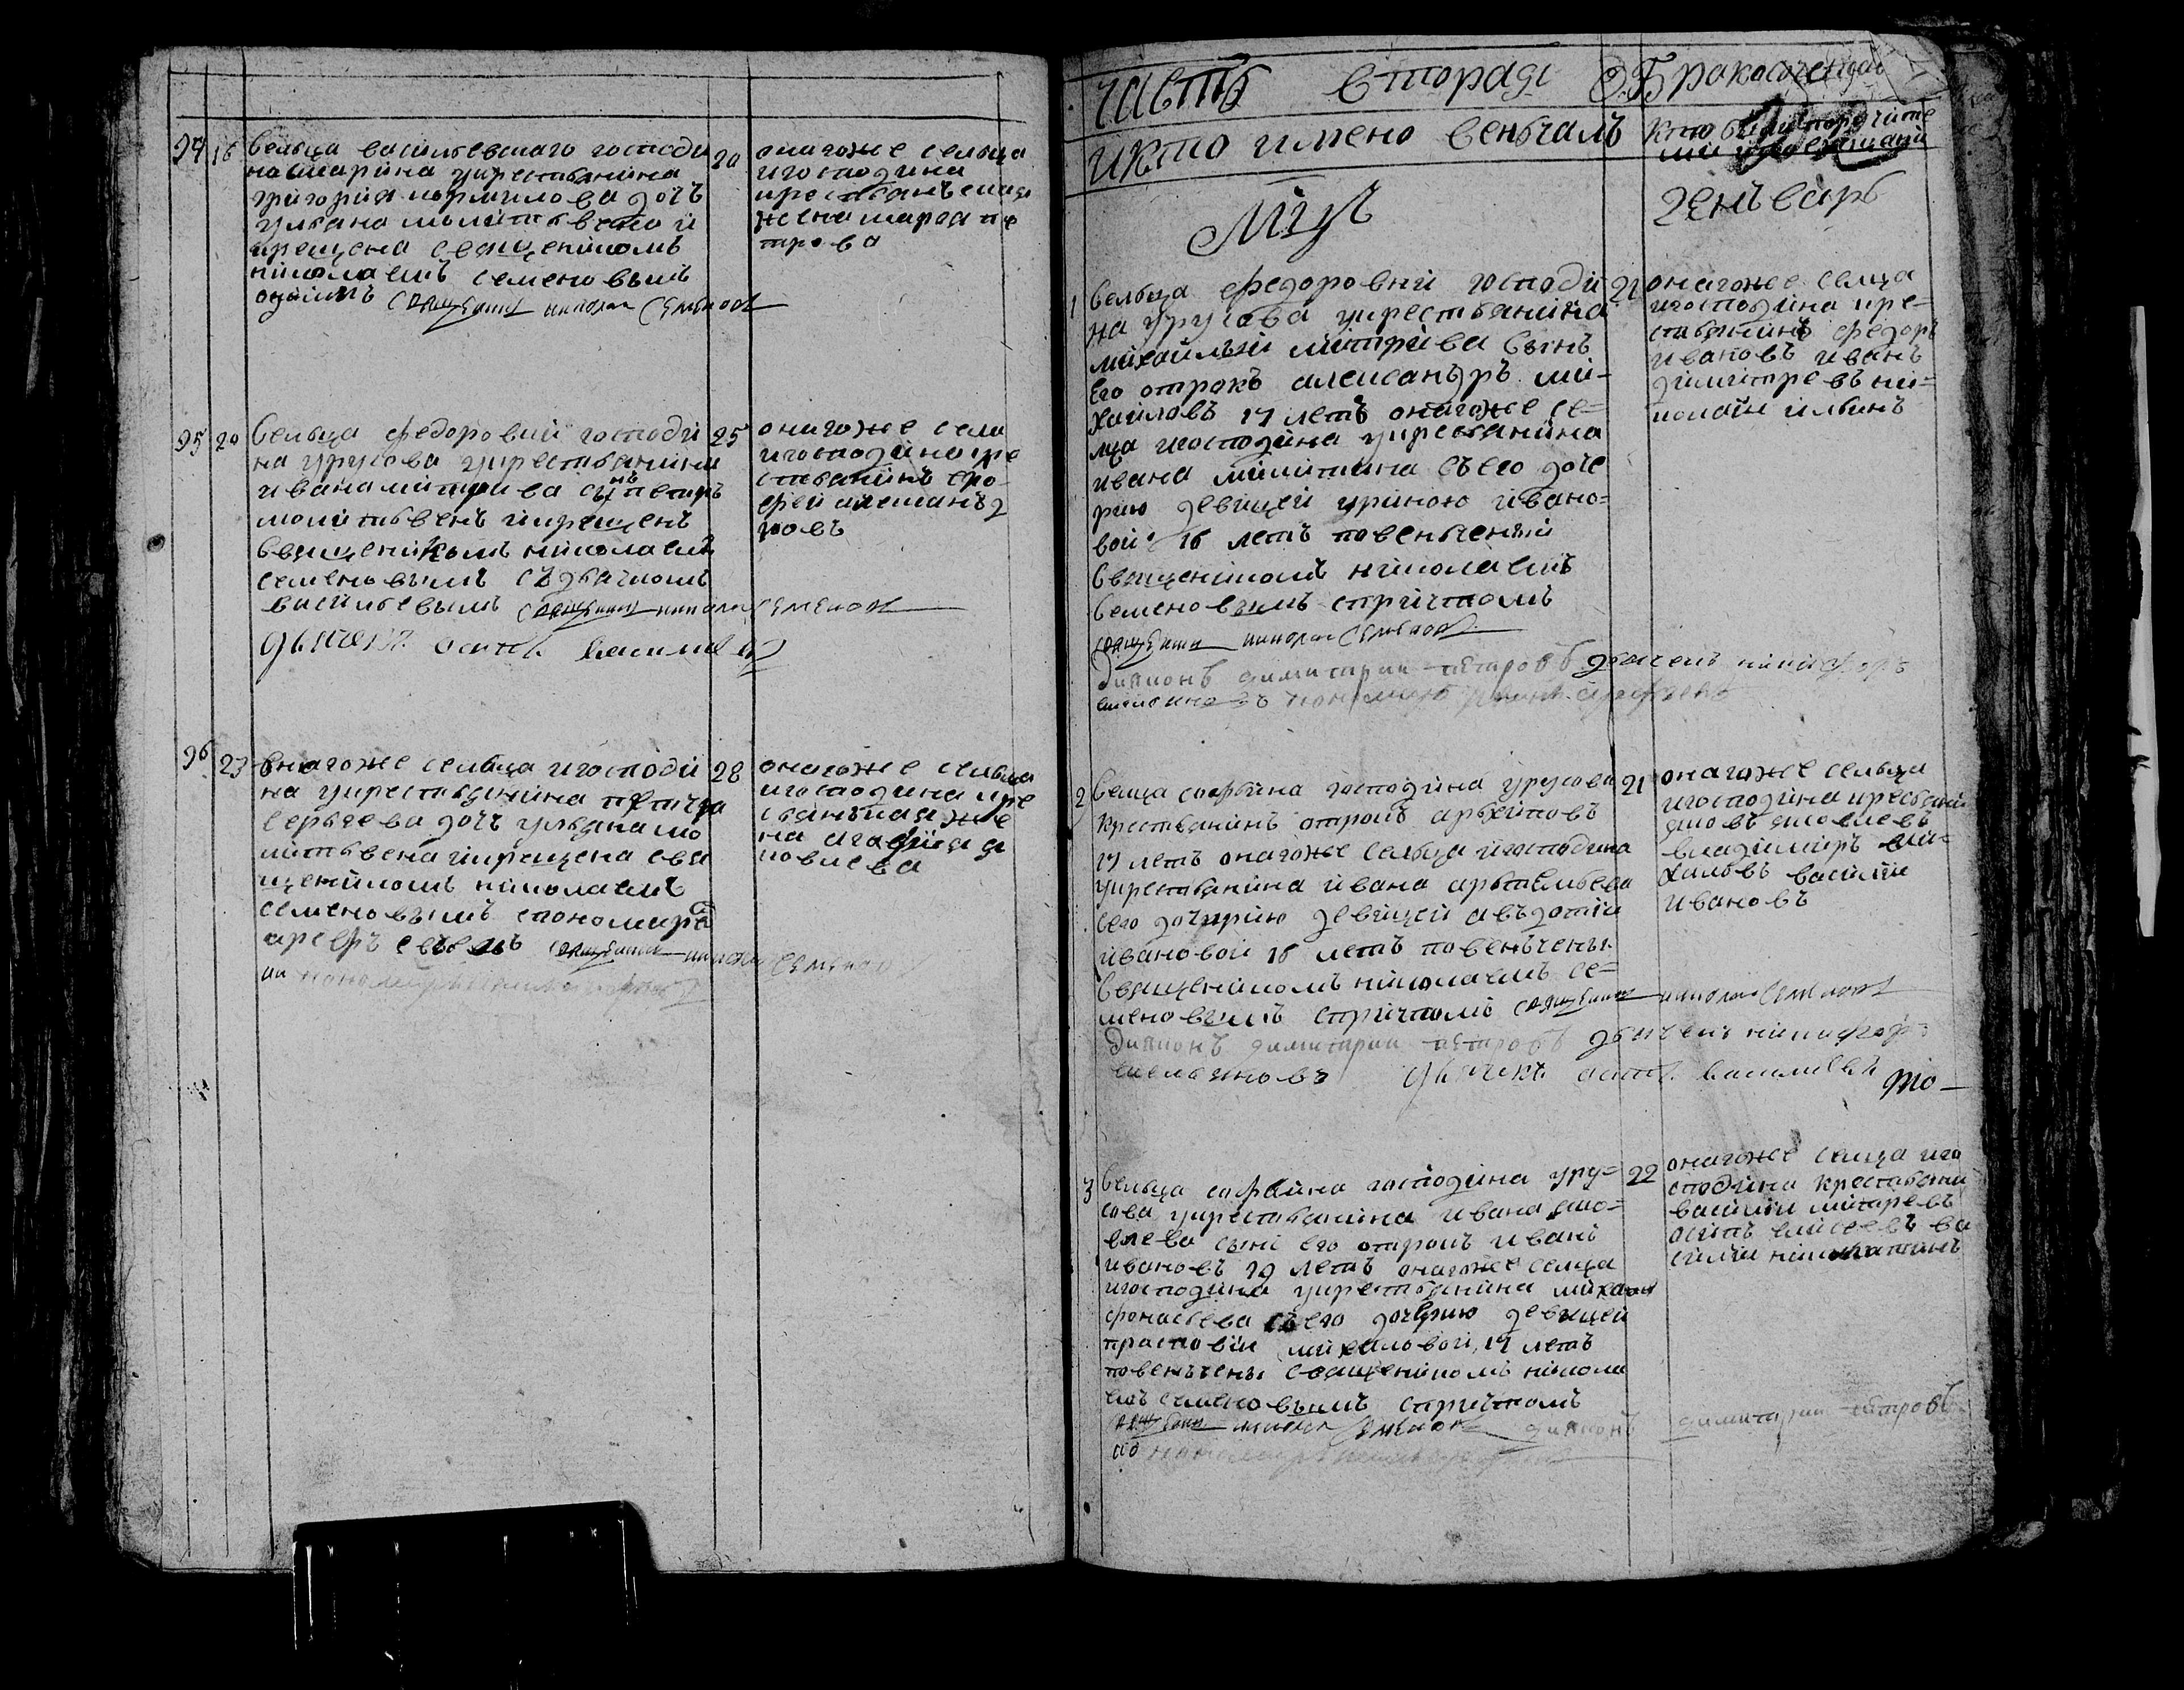 94 16 Селца василевскаго господи
на шарина у крестьянина
григория кормилова дочъ
ульяна молитвена и
крещена священиком
николаемъ семеновымъ
священникъ николаи семенов
20 онагоже селца
и господина
крестьянъская
жена марфа пе
трова
95 20 Селца федоровки господи
на урусова у крестьянина
ивана митриева сынъ петръ
молитвенъ и крещенъ
священикомъ николаемъ
семеновымъ с дьячкомъ
василиевымъ священникъ николаи семенов
дьячекъ осипъ василиевъ
25 онагоже села
и господина кре
стьянинъ еро
фей алексанъд
ровъ
96 23 онагоже селца и господи
на у крестьянина петра
сергеева дочъ ульяна мо
литвена и крещена свя
щеникомъ николаемъ
семеновымъ с пономаремъ
священникъ николаи семенов
28 онагоже селца
и господина кре
стьянъская же
на агафия я
ковлева
часть вторая О Бракосочетаи
и кто имено венчалъ
кто были поручите
Мцъ генъварь
1 Селца федоровки господи
на урусова у крестьянина
михайлы митриева сынъ
его отрокъ алексанъдръ ми=
хайловъ 17 летъ онагоже се=
лца и господина у крестьянина
ивана микитина съ его доче
рию девицей ириною ивано=
вой 16 летъ повенчены
священикомъ николаемъ
семеновымъ с причтомъ
священникъ николаи семенов
диаконъ димитрии петровъ дьячекъ никифоръ
21 онагоже селца
и господина кре=
стьянинъ федоръ
ивановъ иванъ
димитревъ ни=
колай ильинъ
2 Селца софьина господина урусова
крестьянинъ отрокъ
17 летъ онагоже селца и господина
у крестьянина ивана артемьева
с его дочерию девицей авъдотии
ивановой 16 летъ повенъчены
священикомъ николаемъ се=
меновымъ с причтомъ священникъ николаи семенов
диаконъ димитрии петровъ дьячекъ никифоръ
дьячекъ осипъ василиевъ то—
21 онагоже селца
и господина крестьяни
яковъ яковлевъ
владимиръ ми=
хайловъ василии
ивановъ
3 Селца софьина господина уру=
сова у крестьянина ивана яко=
влева сынъ его отрокъ иванъ
ивановъ 19 летъ онагоже селца
и господина у крестьянина михаила
афонасьева съ его дочерию девицей
прасковии михаиловой 17 летъ
повенъчены священикомъ никола
емъ семеновымъ с причтомъ
священникъ николаи семенов диаконъ димитрии петровъ
22 онагоже селца и го
сподина крестьяни
василии митаревъ
осипъ елисеевъ ва
силии никитинъ